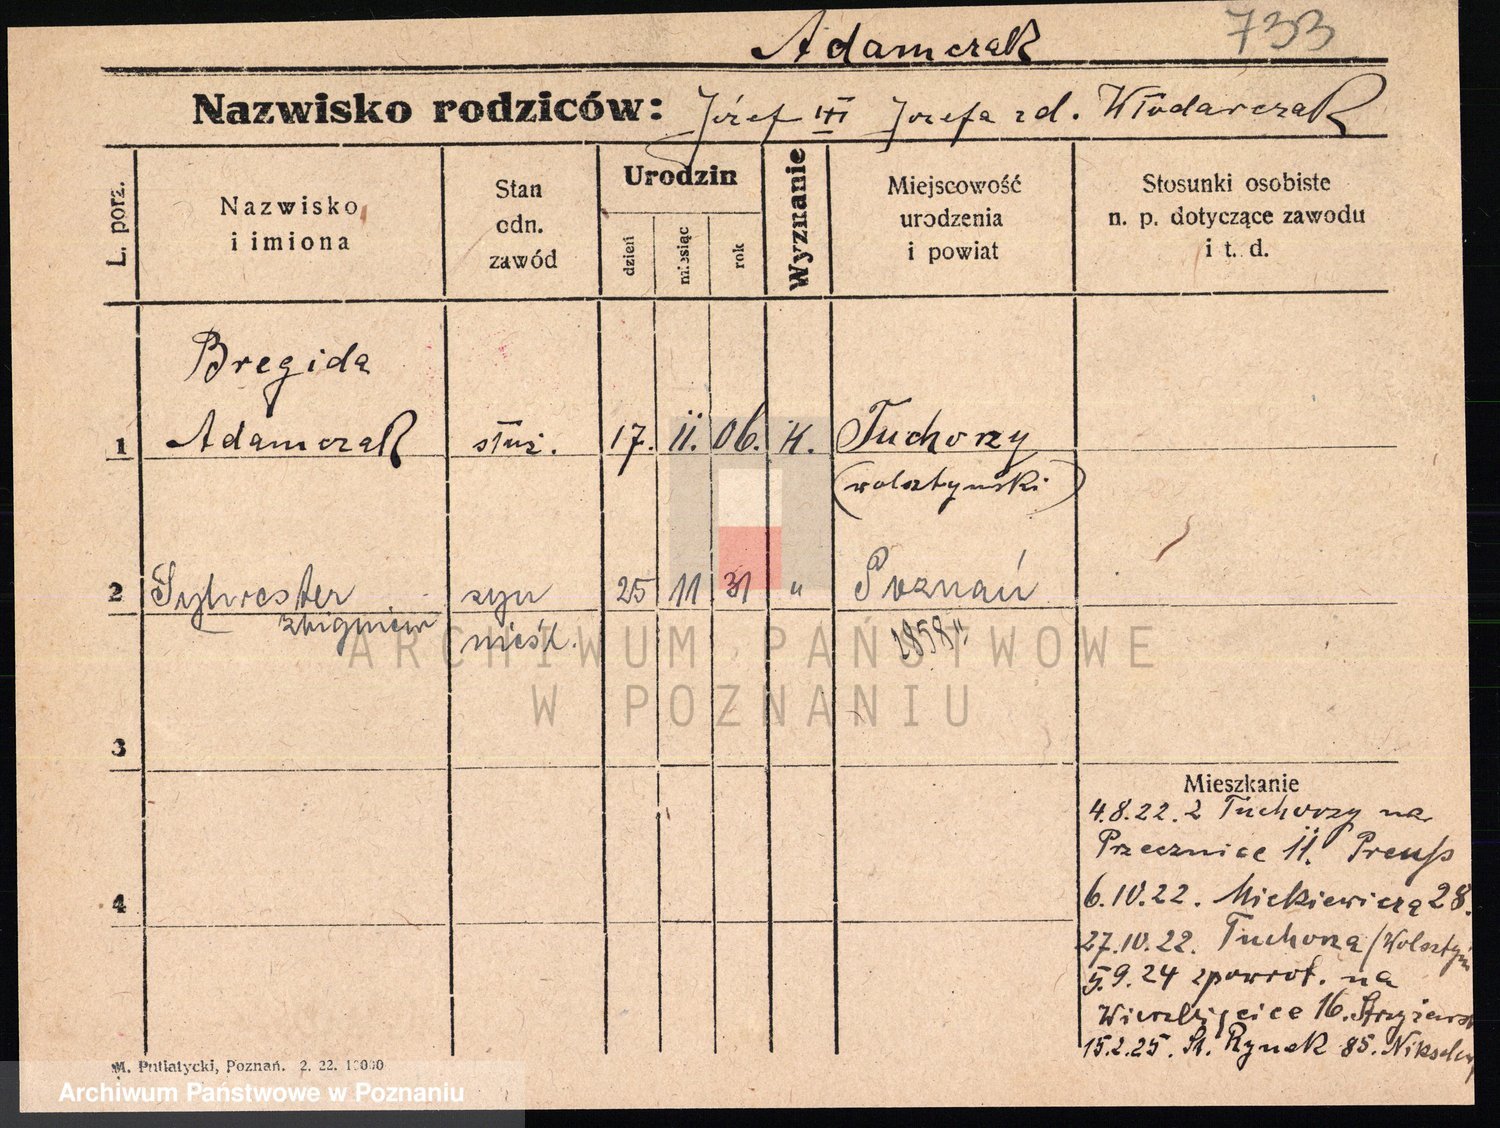 Adamczak 733
Nazwisko rodziców: Józef III Jozefa zd. Włodarczak
L. porz.
Nazwisko
i imiona
Stan
odn.
zawód
Urodzin
dzień
miesiąc
rok
Wyznanie
Miejscowość
urodzenia
i powiat
Stosunki osobiste
n. p. dotyczące zawodu
i t. d.
Bregida
1 Adamczak służ. 17. II. 06. K. Tuchorzy
(wolsztynski)
2 Sylwester syn 25 11 31 " Poznań
Zbigniew nieśl. 1858 II.
ARCHIWUM PAŃSTWOWE
W POZNANIU
3
Mieszkanie
4.8.22. z Tuchorzy na
Przecznice II. Preuß
4
6.10.22. Mickiewicza 28.
27.10.22. Tuchorza (Wolsztyn
5.9.24 zpowrot. na
Wierzbięcice 16.
15.2.25. St. Rynek 85.
M. Putiatycki, Poznań. 2. 22. 10000
Archiwum Państwowe w Poznaniu